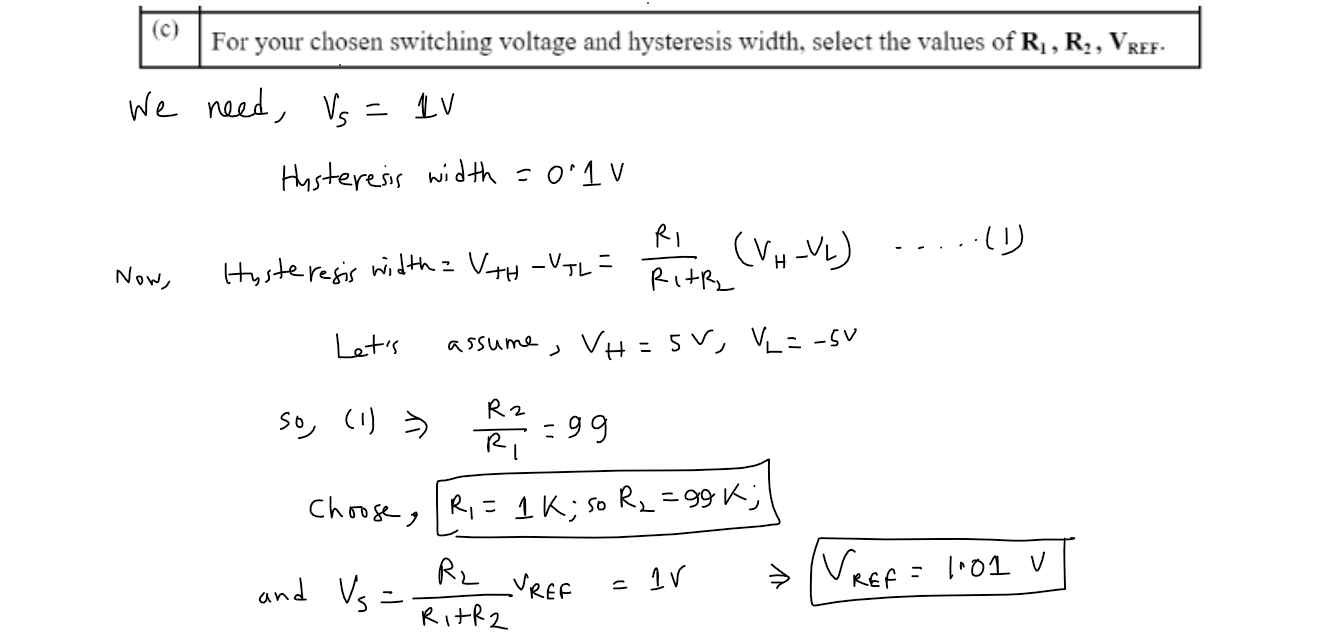 (c) For your chosen switching voltage and hysteresis width, select the values of R₁, R₂, V_REF.
We need, V_S = 1V
Hysteresis width = 0.1 V
Now, Hysteresis width = V_TH - V_TL = R₁/(R₁+R₂) (V_H - V_L) ......(1)
Let's assume, V_H = 5V, V_L = -5V
So, (1) ⇒ R₂/R₁ = 99
Choose, R₁ = 1K; so R₂ = 99K;
and V_S = R₂/(R₁+R₂) V_REF = 1V ⇒ V_REF = 1.01 V